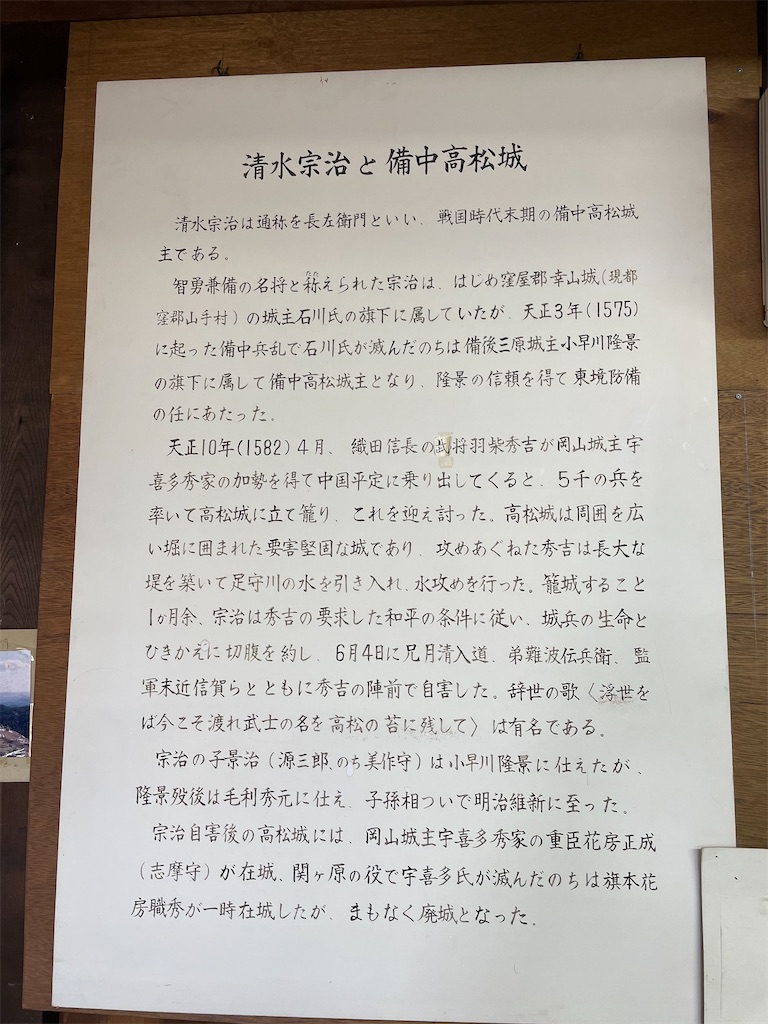 清水宗治と備中高松城
清水宗治は通称を長左衛門といい、戦国時代末期の備中高松城
主である。
智勇兼備の名将と称えられた宗治は、はじめ窪屋郡幸山城(現都
たた
窪郡山手村)の城主石川氏の旗下に属していたが、天正3年(1575)
に起った備中兵乱で石川氏が滅んだのちは備後三原城主小早川隆景
の旗下に属して備中高松城主となり、隆景の信頼を得て東境防備
の任にあたった。
天正10年(1582)4月、織田信長の武将羽柴秀吉が岡山城主宇
喜多秀家の加勢を得て中国平定に乗り出してくると、5千の兵を
率いて高松城に立て籠り、これを迎え討った。高松城は周囲を広
い堀に囲まれた要害堅固な城であり、攻めあぐねた秀吉は長大な
堤を築いて足守川の水を引き入れ、水攻めを行った。籠城すること
1ヵ月余、宗治は秀吉の要求した和平の条件に従い、城兵の生命と
ひきかえに切腹を約し、6月4日に兄月清入道、弟難波伝兵衛、監
軍末近信賀らとともに秀吉の陣前で自害した。辞世の歌〈浮世を
ば今こそ渡れ武士の名を高松の苔に残して〉は有名である。
宗治の子景治(源三郎、のち美作守)は小早川隆景に仕えたが、
隆景歿後は毛利秀元に仕え、子孫相ついで明治維新に至った。
宗治自害後の高松城には、岡山城主宇喜多秀家の重臣花房正成
(志摩守)が在城、関ヶ原の役で宇喜多氏が滅んだのちは旗本花
房職秀が一時在城したが、まもなく廃城となった。